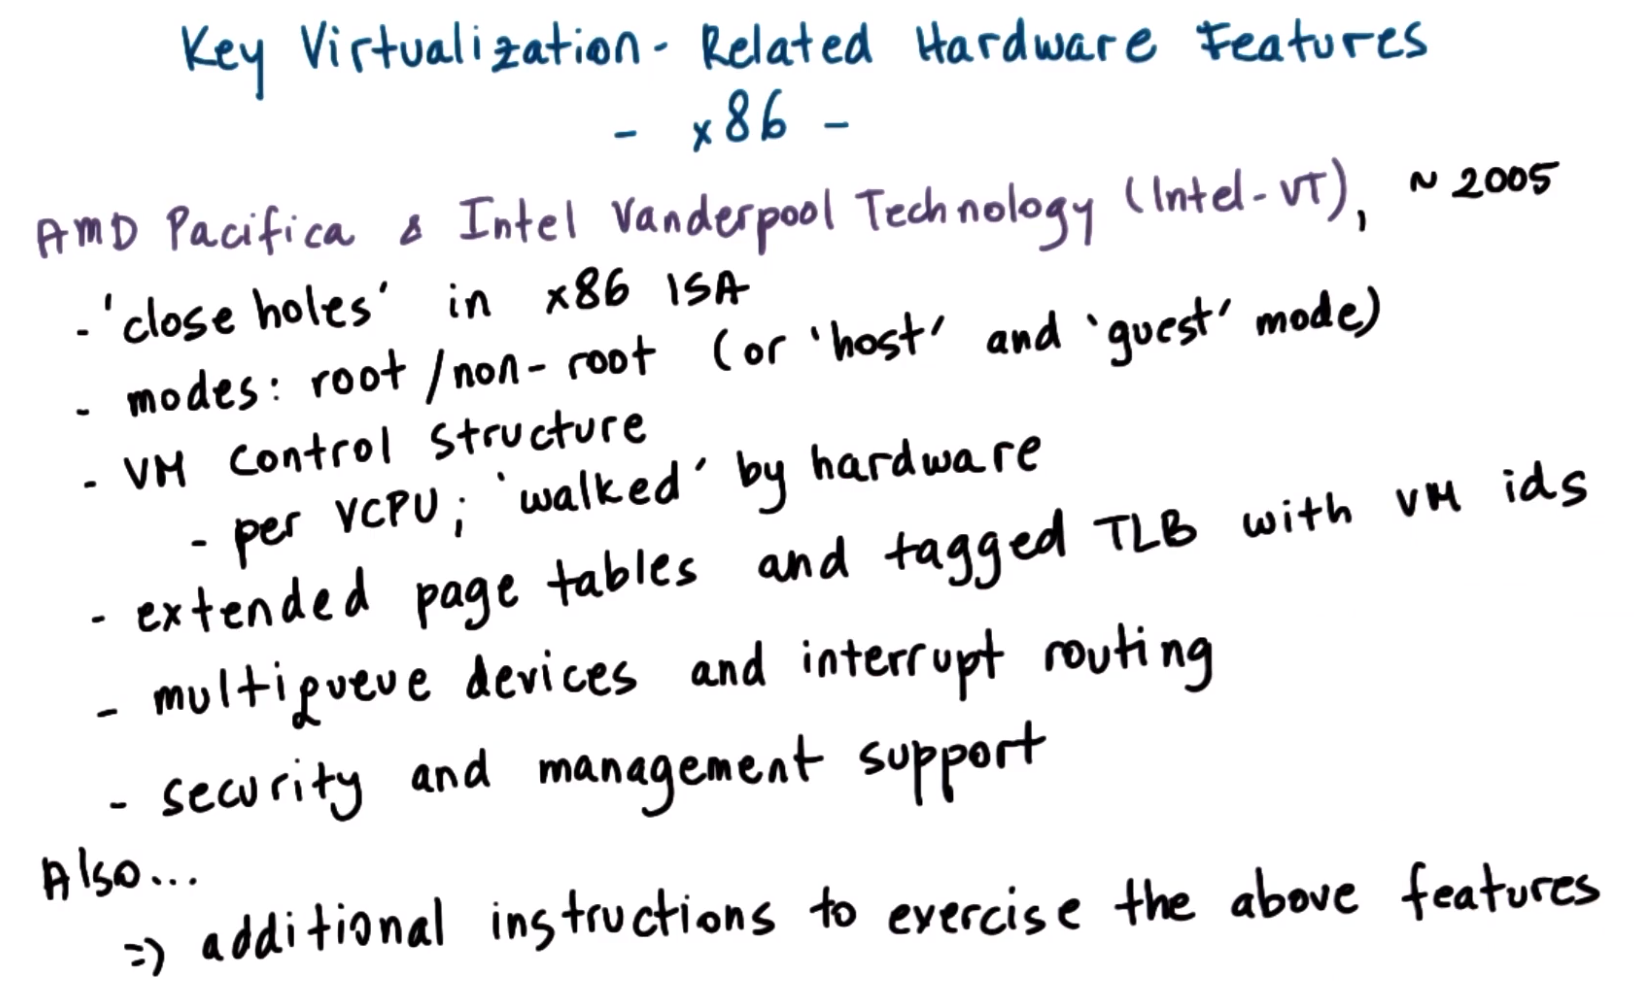 Key Virtualization-Related Hardware Features
- x86 -
AMD Pacifica & Intel Vanderpool Technology (Intel-VT), ~ 2005
- 'close holes' in x86 ISA
- modes: root/non-root (or 'host' and 'guest' mode)
- VM Control Structure
- per VCPU; 'walked' by hardware
- extended page tables and tagged TLB with VM ids
- multiqueue devices and interrupt routing
- security and management support
Also...
=> additional instructions to exercise the above features